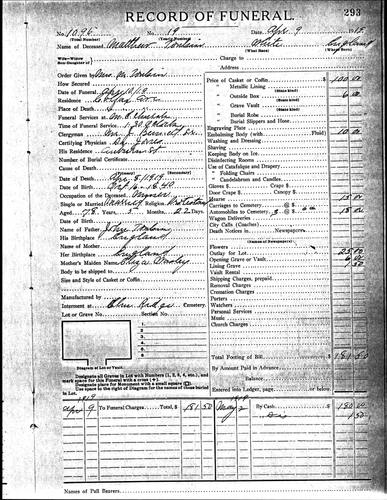 RECORD OF FUNERAL.
293
No. 1096 No. 19 Date, Apr. 9 19
(Total Number) (Yearly Number)
Name of Deceased, Matthew Tomlain White England
Wife—Widow
Son-Daughter of
Charge to
Address
Order Given by Mrs. M. Tomlain
How Secured
Date of Funeral
Residence
Place of Death
Funeral Services at M. E. Church
Time of Funeral Service,
Clergyman
Certifying Physician,
His Residence
Number of Burial Certificate,
Cause of Death,
(Secondary)
Date of Death, Apr. 8, 1919
Date of Birth, Oct. 16 - 1840
Occupation of the Deceased, Farmer
Single or Married Religion, Protestant
Aged 78 Years, 5 Months, 22 Days.
Name of Father, John Tomlain
His Birthplace England
Name of Mother
Her Birthplace England
Mother's Maiden Name, Eliza
Body to be shipped to
Size and Style of Casket or Coffin,
Manufactured by
Interment at Elm Ridge Cemetery.
Lot or Grave No. Section No.
1
2
3
4
5
6
Diagram of Lot or Vault.
Designate all Graves in Lot with Numbers (1, 2, 3, 4, etc.), and
mark space for this Funeral with a cross (+).
Designate place for Monument with a small square (□).
Use space to the right of Diagram for names of those buried
in Lot.
Price of Casket or Coffin 100 00
" Metallic Lining
(State kind)
" Outside Box
(State kind)
" Grave Vault
(State kind)
" Burial Robe
" Burial Slippers and Hose
Engraving Plate
Embalming Body (with Fluid) 10 00
Washing and Dressing
Shaving
Keeping Body on Ice
Disinfecting Rooms
Use of Catafalque and Drapery
" Folding Chairs
" Candelabrum and Candles
Gloves $ Crape $
Door Crape $ Canopy $
Hearse 15 00
Carriages to Cemetery @ $
Automobiles to Cemetery 3 @ $ 18 00
Wagon Deliveries
City Calls (Coaches)
Death Notices in Newspapers
(Names of Newspapers)
Flowers
Outlay for Lot 25 00
Opening Grave or Vault
Lining Grave
Vault Rental
Shipping Charges, prepaid
Removal Charges
Cremation Charges
Porters
Watchers
Personal Services
Music
Church Charges
Total Footing of Bill 181 50
By Amount Paid in Advance
Balance
Entered into Ledger, page or below.
1919
Apr 9 To Funeral Charges Total, $ 181 50 May 2 By Cash 180 00
Dis 1 50
Names of Pall Bearers,